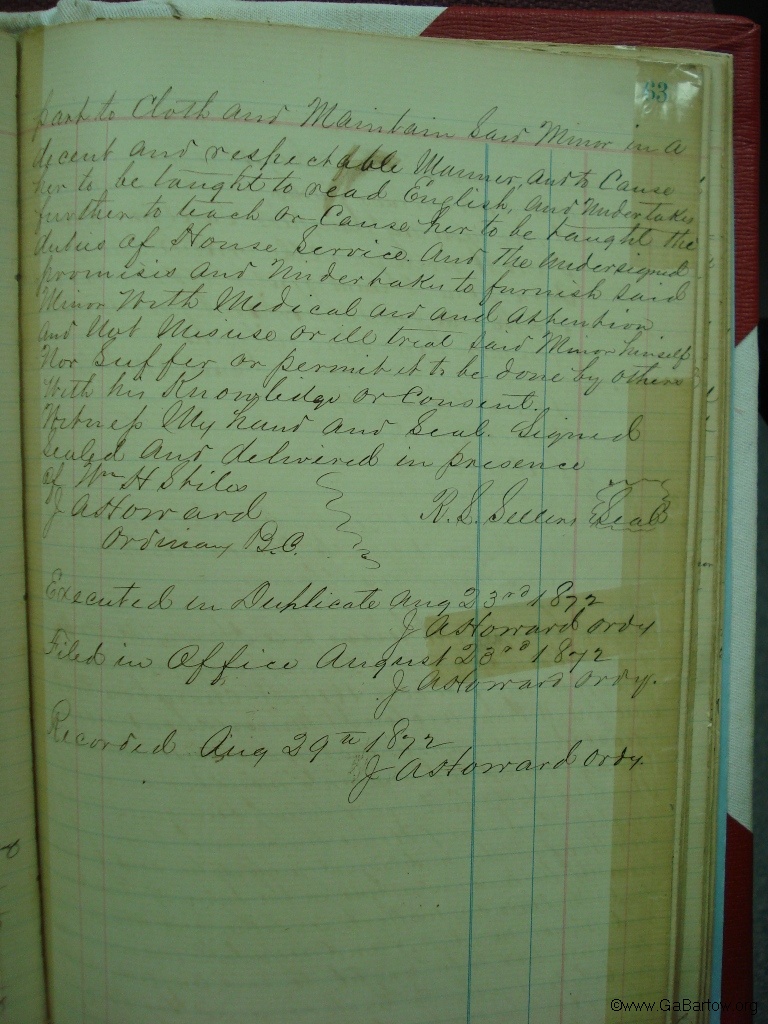 63
part to Cloth and Maintain Said Minor in a
decent and respectable Manner, and to Cause
her to be taught to read English, and Undertakes
further to teach or Cause her to be taught the
duties of House Service. And the Undersigned
promisis and Undertakes to furnish said
Minor With Medical aid and Attention
and Not Misuse or ill treat said Minor himself
Nor Suffer or permit it to be done by others
With his Knowledge or Consent.
Witness My hand and Seal. Signed
Sealed and delivered in presence
of Wm H Stiles
J A Howard R. S. Sellers Seal
Ordinary B.C.
Executed in Duplicate Aug 23rd 1872
J A Howard Ordy
Filed in Office August 23rd 1872
J A Howard Ordy.
Recorded Aug 29th 1872
J A Howard Ordy.
©www.GaBartow.org